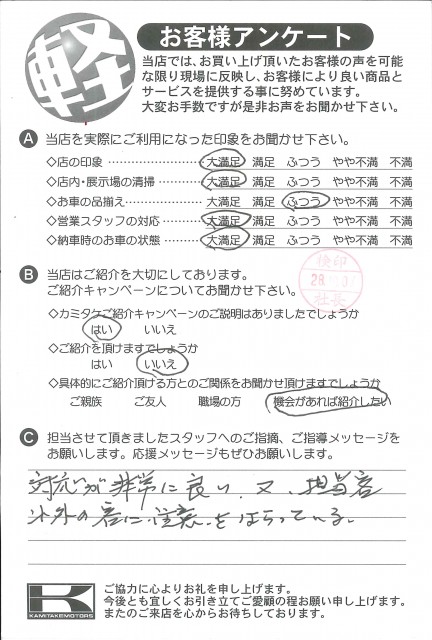 軽
お客様アンケート
当店では、お買い上げ頂いたお客様の声を可能
な限り現場に反映し、お客様により良い商品と
サービスを提供する事に努めています。
大変お手数ですが是非お声をお聞かせ下さい。
A 当店を実際にご利用になった印象をお聞かせ下さい。
◇店の印象 大満足 満足 ふつう やや不満 不満
◇店内・展示場の清掃 大満足 満足 ふつう やや不満 不満
◇お車の品揃え 大満足 満足 ふつう やや不満 不満
◇営業スタッフの対応 大満足 満足 ふつう やや不満 不満
◇納車時のお車の状態 大満足 満足 ふつう やや不満 不満
検印
社長
B 当店はご紹介を大切にしております。
ご紹介キャンペーンについてお聞かせ下さい。
◇カミタケご紹介キャンペーンのご説明はありましたでしょうか
はい いいえ
◇ご紹介を頂けますでしょうか
はい いいえ
◇具体的にご紹介頂ける方とのご関係をお聞かせ頂けますでしょうか
ご親族 ご友人 職場の方 機会があれば紹介したい
C 担当させて頂きましたスタッフへのご指摘、ご指導メッセージを
お願いします。応援メッセージもぜひお願いします。
対応が非常に良い、又、担当客
以外の客に注意をはらっている。
K
KAMITAKEMOTORS
ご協力に心よりお礼を申し上げます。
今後とも宜しくお引き立てご愛顧の程お願い申し上げます。
またのご来店を心からお待ちしております。